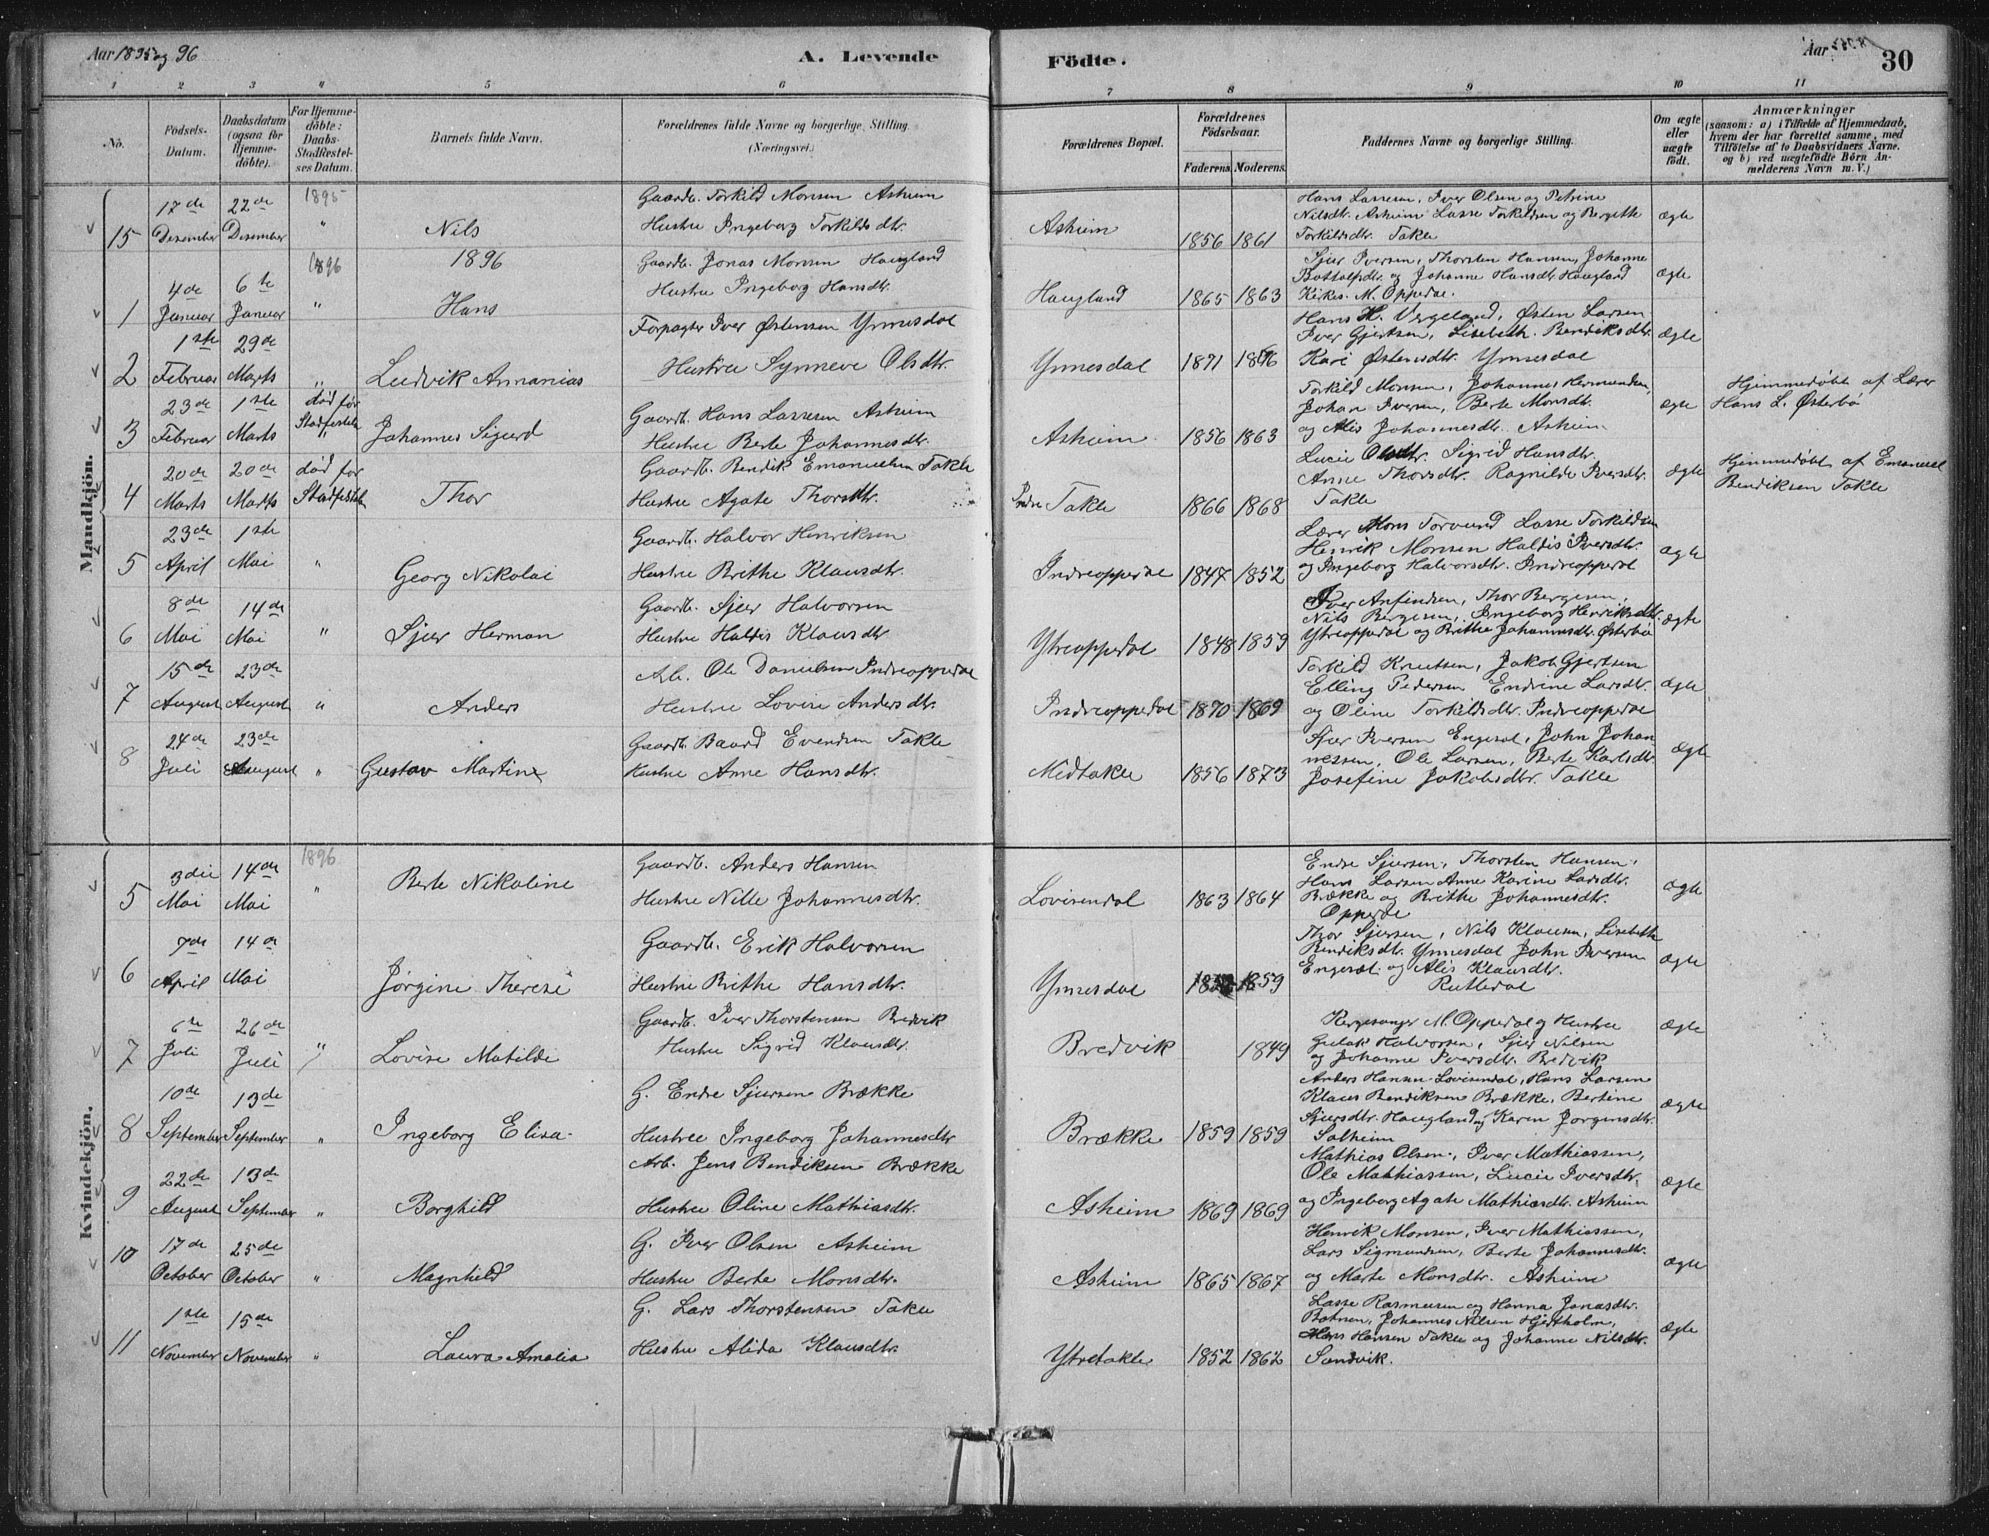 Aar 1895 og 96
A. Levende
Födte.
Aar
30
1 2 3 4 5 6 7 8 9 10 11
No.
Födsels-Datum.
Daabsdatum (ogsaa for Hjemmedöbte).
For Hjemmedöbte: Daabs-Stadfæstelses Datum.
Barnets fulde Navn.
Forældrenes fulde Navne og borgerlige Stilling. (Næringsvei.)
Forældrenes Bopæl.
Forældrenes Födselsaar.
Faderens. Moderens.
Faddernes Navne og borgerlige Stilling.
Om ægte eller uægte födt.
Anmærkninger
(saasom: a) i Tilfælde af Hjemmedaab, hvem der har forrettet samme, med Tilföielse af to Daabsvidners Navne. og b) ved uægtefödte Börn Anmelderens Navn m. V.)
Mandkjön.
1895
15 17de Desember 22de Desember " Nils
Gaardb. Torkild Monsen Asheim
Hustru Ingeborg Torkildsdtr.
Asheim 1856 1861
Hans Lassesen, Iver Olsen og Petrine
Nilsdtr. Asheim Lasse Torkildsen og Bergithe
Torkildsdtr. Takle
ægte
1896
1896
1 4de Januar 6te Januar " Hans
Gaardb. Jonas Monsen Haugland
Hustru Ingeborg Hansdtr.
Haugland 1865 1863
Sjur Iversen, Thorsten Hansen, Johanne
Bottolfsdtr. og Johanne Hansdtr. Haugland
Kirkes. M. Oppedal.
ægte
2 1ste Februar 29de Marts " Ludvik Annanias
Forpagter Iver Østensen Ynnesdal
Hustru Synneve Olsdtr.
Ynnesdal 1871
Hans H. Vergeland, Østen Larsen
Iver Gjertsen, Lisebeth Bendiksdtr.
Kari Østensdtr. Ynnesdal
ægte
3 23de Februar 1ste Marts død før Stadfestelse Johannes Sigurd
Gaardb. Hans Lassesen Asheim
Hustru Berte Johannesdtr.
Asheim 1856 1863
Torkild Monsen, Johannes Hermundsen,
Johan Iversen, Berte Monsdtr.
og Alis Johannesdtr. Asheim
ægte
Hjemmedøbt af Lærer
Hans L. Østerbø
4 20de Marts 20de Marts død før Stadfestelse Thor
Gaardb. Bendik Emanuelsen Takle
Hustru Agate Thorsdtr.
Indre Takle 1866 1868
Lucie Olsdtr. Sigrid Hansdtr.
Anne Thorsdtr. Ragnilde Iversdtr.
Takle
ægte
Hjemmedøbt af Emanuel
Bendiksen Takle
5 23de April 1ste Mai " Georg Nikolai
Gaardb. Halvor Henriksen
Hustru Brithe Klausdtr.
Indreoppedal 1847 1852
Lærer Mons Torvund Lasse Torkildsen
Henrik Monsen Haldis Iversdtr.
og Ingeborg Halvorsdtr. Indreoppedal
ægte
6 8de Mai 14de Mai " Sjur Herman
Gaardb. Sjur Halvorsen
Hustru Haldis Klausdtr
Ytreoppedal 1848 1859
Iver Anfindsen, Thor Bergesen,
Nils Bergesen, Ingeborg Henriksdtr.
Ytreoppedal og Brithe Johannesdtr. Østerbø
ægte
7 15de August 23de August " Anders
Arb. Ole Danielsen Indreoppedal
Hustru Lovise Andersdtr.
Indreoppedal 1870 1869
Torkild Knutsen, Jakob Gjertsen
Elling Pedersen Endrine Larsdtr.
og Oline Torkildsdtr. Indreoppedal
ægte
8 24de Juli 23de August " Gustav Martin
Gaardb. Baard Evendsen Takle
Hustru Anne Hansdtr.
Medtakle 1856 1873
Sjur Iversen Engesæt, John Johan
nessen, Ole Larsen, Berte Karlsdtr.
Josefine Jakobsdtr. Takle
ægte
Kvindekjön.
1896
5 3die Mai 14de Mai " Berte Nikoline
Gaardb. Anders Hansen
Hustru Nille Johannesdtr.
Lovisendal 1863 1864
Endre Sjursen, Thorsten Hansen,
Hans Larsen Anne Karine Larsdtr.
Brække og Brithe Johannesdtr.
Oppedal
ægte
6 7de April 14de Mai Jørgine Therese
Gaardb. Erik Halvorsen
Hustru Brithe Hansdtr.
Ynnesdal 1859
Thor Sjursen, Nils Klausen, Lisebeth
Bendiksdtr. Ynnesdal John Iversen
Engesæt og Alis Klausdtr.
Rutledal
ægte
7 6te Juli 26de Juli " Lovise Matilde
Gaardb. Iver Thorstensen Bredvik
Hustru Sigrid Klausdtr.
Bredvik 1849
Kirgesanger M. Oppedal og Hustru
Gulak Halvorsen, Sjur Nilsen
og Johanne Iversdtr. Bredvik
ægte
8 10de September 13de September " Ingeborg Elisa
G. Endre Sjursen Brække
Hustru Ingeborg Johannesdtr
Brække 1859 1859
Anders Hansen Lovisendal, Hans Larsen
Klaus Bendiksen Brække, Bertine
Sjursdtr. Haugland og Karen Jørgensdtr.
Solheim
ægte
9 22de August 13de September " Borghild
Arb. Jens Bendiksen Brække
Hustru Oline Mathiasdtr.
Asheim 1869 1869
Mathias Olsen, Iver Mathiassen,
Ole Mathiassen, Lucie Iversdtr.
og Ingeborg Agate Mathiasdtr. Asheim
ægte
10 17de October 25de October " Magnhild
G. Iver Olsen Asheim
Hustru Berte Monsdtr.
Asheim 1865 1867
Henrik Monsen, Iver Mathiassen,
Lars Sigmundsen, Berte Johannesdtr.
og Marte Monsdtr. Asheim
ægte
11 1ste November 15de November " Laura Amalia
G. Lars Thorstensen Takle
Hustru Alida Klausdtr.
Ytretakle 1852 1862
Lasse Rasmussen og Hanna Jonasdtr.
Botnen, Johannes Nilsen Hjertholm,
Hans Hansen Takle og Johanne Nilsdtr.
Sandvik.
ægte